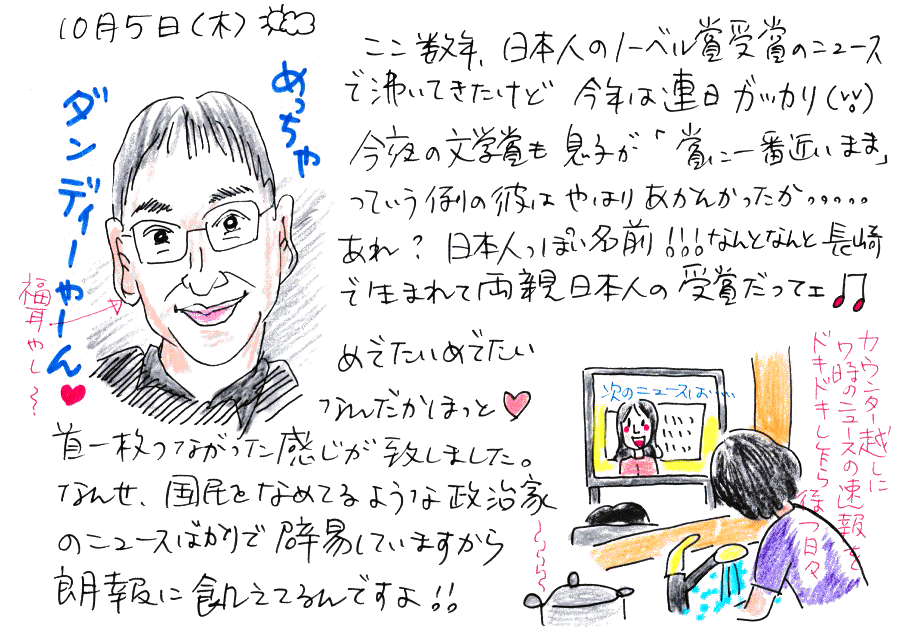 10月5日(木)
めっちゃ
ダンディーやーん
福耳やし〜
ここ数年、日本人のノーベル賞受賞のニュース
で沸いてきたけど 今年は連日ガッカリ
今夜の文学賞も 息子が「賞に一番近いまま」
っていう例の彼は やはりあかんかったか.....
あれ?日本人っぽい名前!!!なんとなんと長崎
で生まれて両親日本人の 受賞だってェ♫
めでたいめでたい
なんだかほっと
首一枚つながった感じが致しました。
なんせ、国民をなめてるような政治家
のニュースばかりで辟易していますから
朗報に飢えてるんですよ!!
次のニュースは....
カウンター越しに
7時のニュースの速報を
ドキドキしたら待つ日々